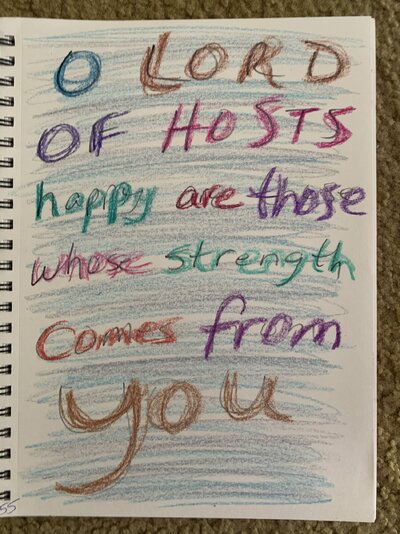 O LORD
OF HOSTS
happy are those
whose strength
comes from
you
55